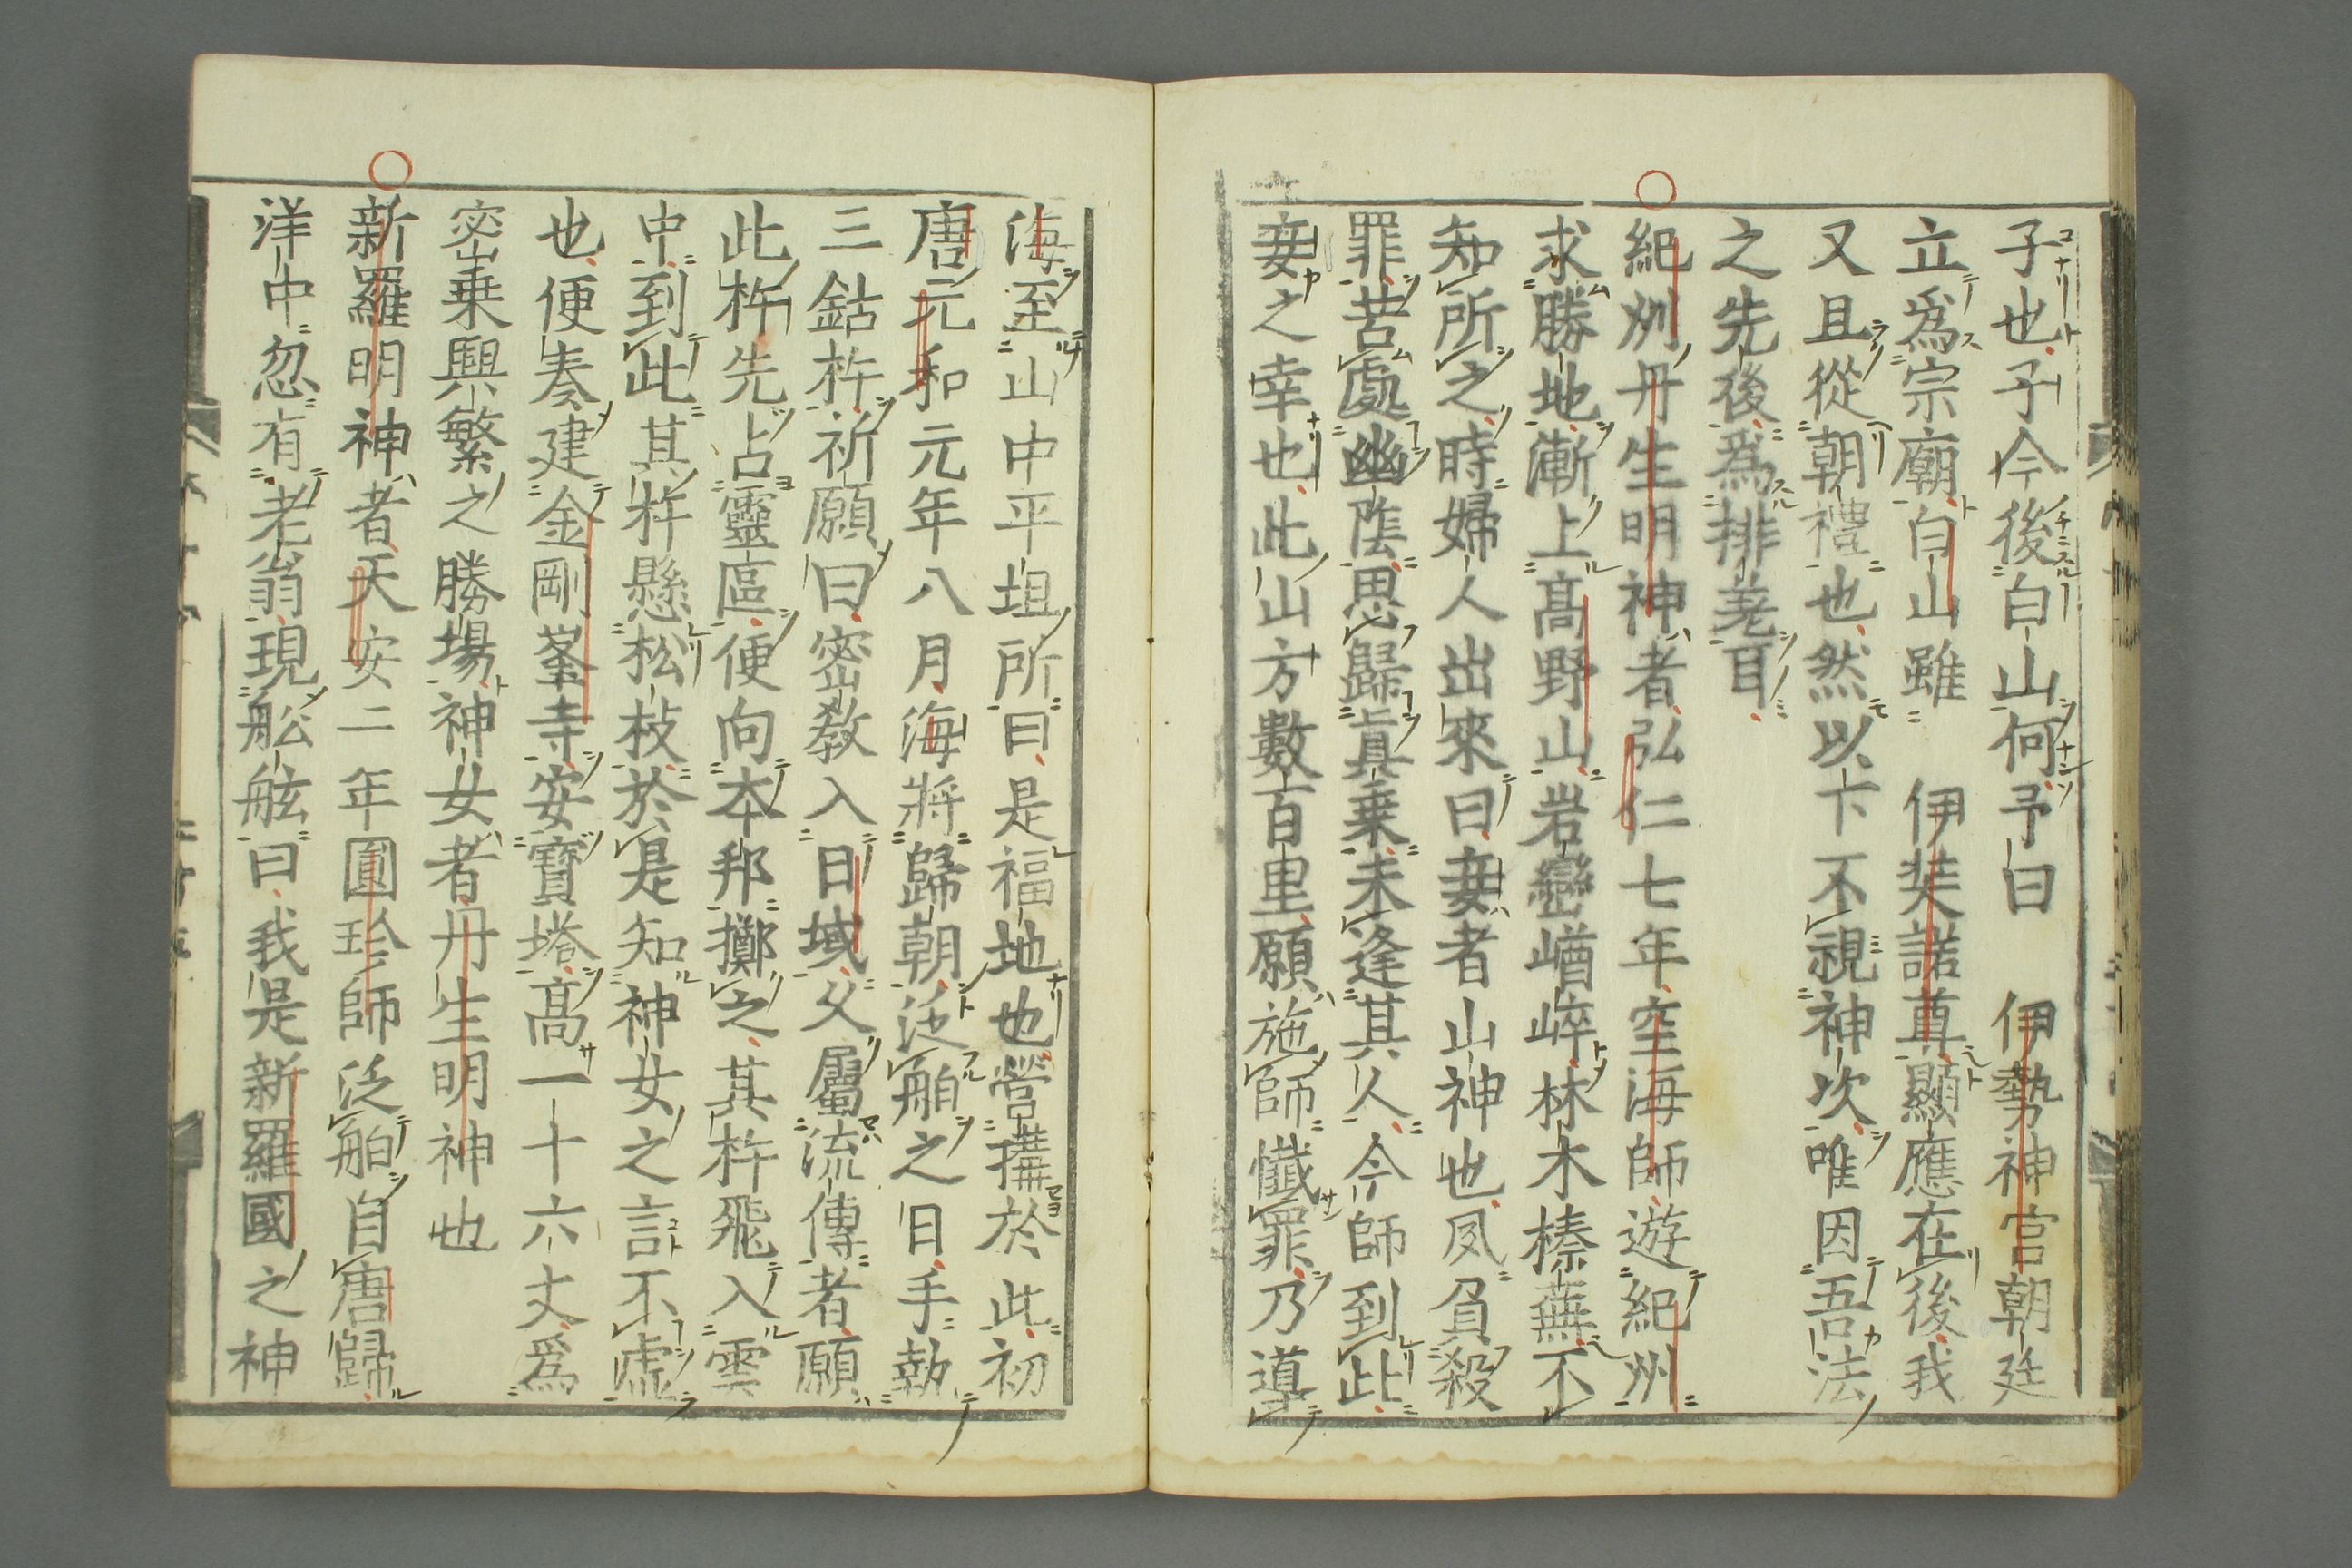 子也子今後白山何予曰　伊勢神宮朝廷
立爲宗廟白山雖　伊弉諾尊顯應在後我
又且從朝禮也然以卞不視神次唯因吾法
之先後爲排萋耳
紀州丹生明神者弘仁七年空海師遊紀州
求勝地漸上髙野山岩巒嶒崪林木榛蕪不
知所之時婦人出來曰妾者山神也夙負殺
罪苦處幽陰思歸眞乗未逢其人今師到此
妾之幸也此山方數百里願施師懺罪乃導
海至山中平坦所曰是福地也營搆於此初
唐元和元年八月海將歸朝泛舶之日手執
三鈷杵祈願曰密教入日域父屬流傳者願
此杵先占靈區便向本邦擲之其杵飛入雲
中到此其杵懸松枝於是知神女之言不虚
也便奏建金剛峯寺安寶塔髙一十六丈爲
密乗興繁之勝場神女者丹生明神也
新羅明神者天安二年圓珍師泛舶自唐歸
洋中忽有老翁現舩舷曰我是新羅國之神